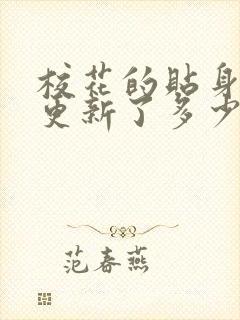 校花的贴身
更新了多少
范春燕